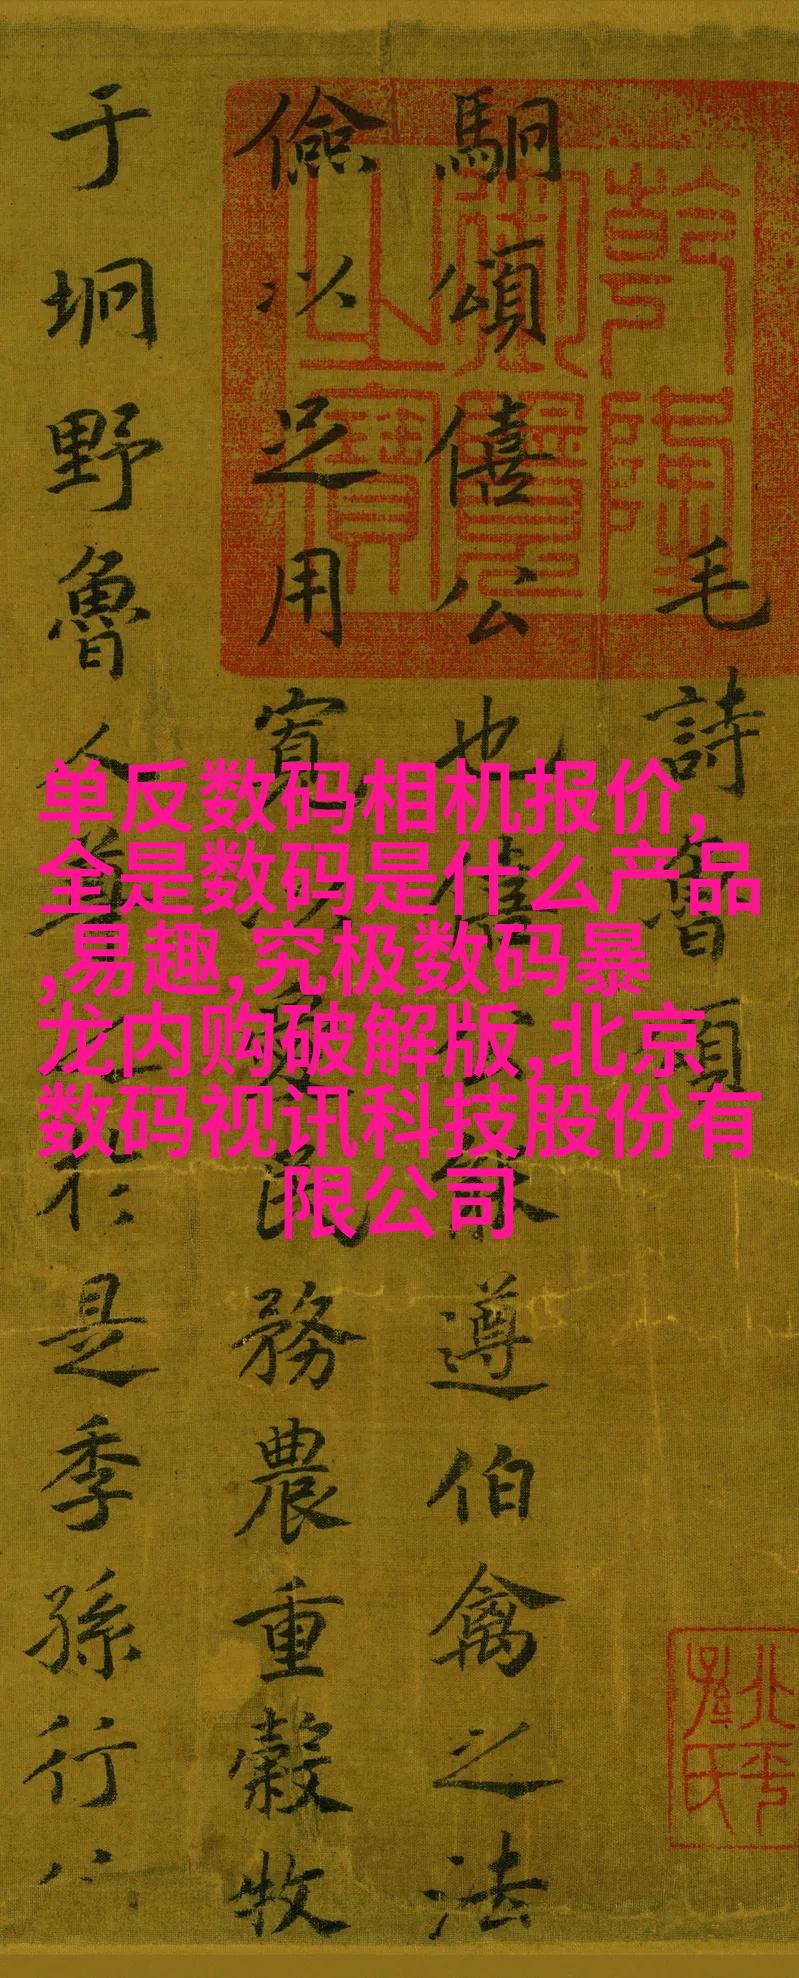 毛詩魯頌
駉頌僖公也僖公能遵伯禽之法
儉以足用寬以愛民務農重穀牧
于坰野魯人尊之於是季孫行
乾隆
御覽
之寶
北平
孫氏
单反数码相机报价,
全是数码是什么产品
,易趣,究极数码暴
龙内购破解版,北京
数码视讯科技股份有
限公司